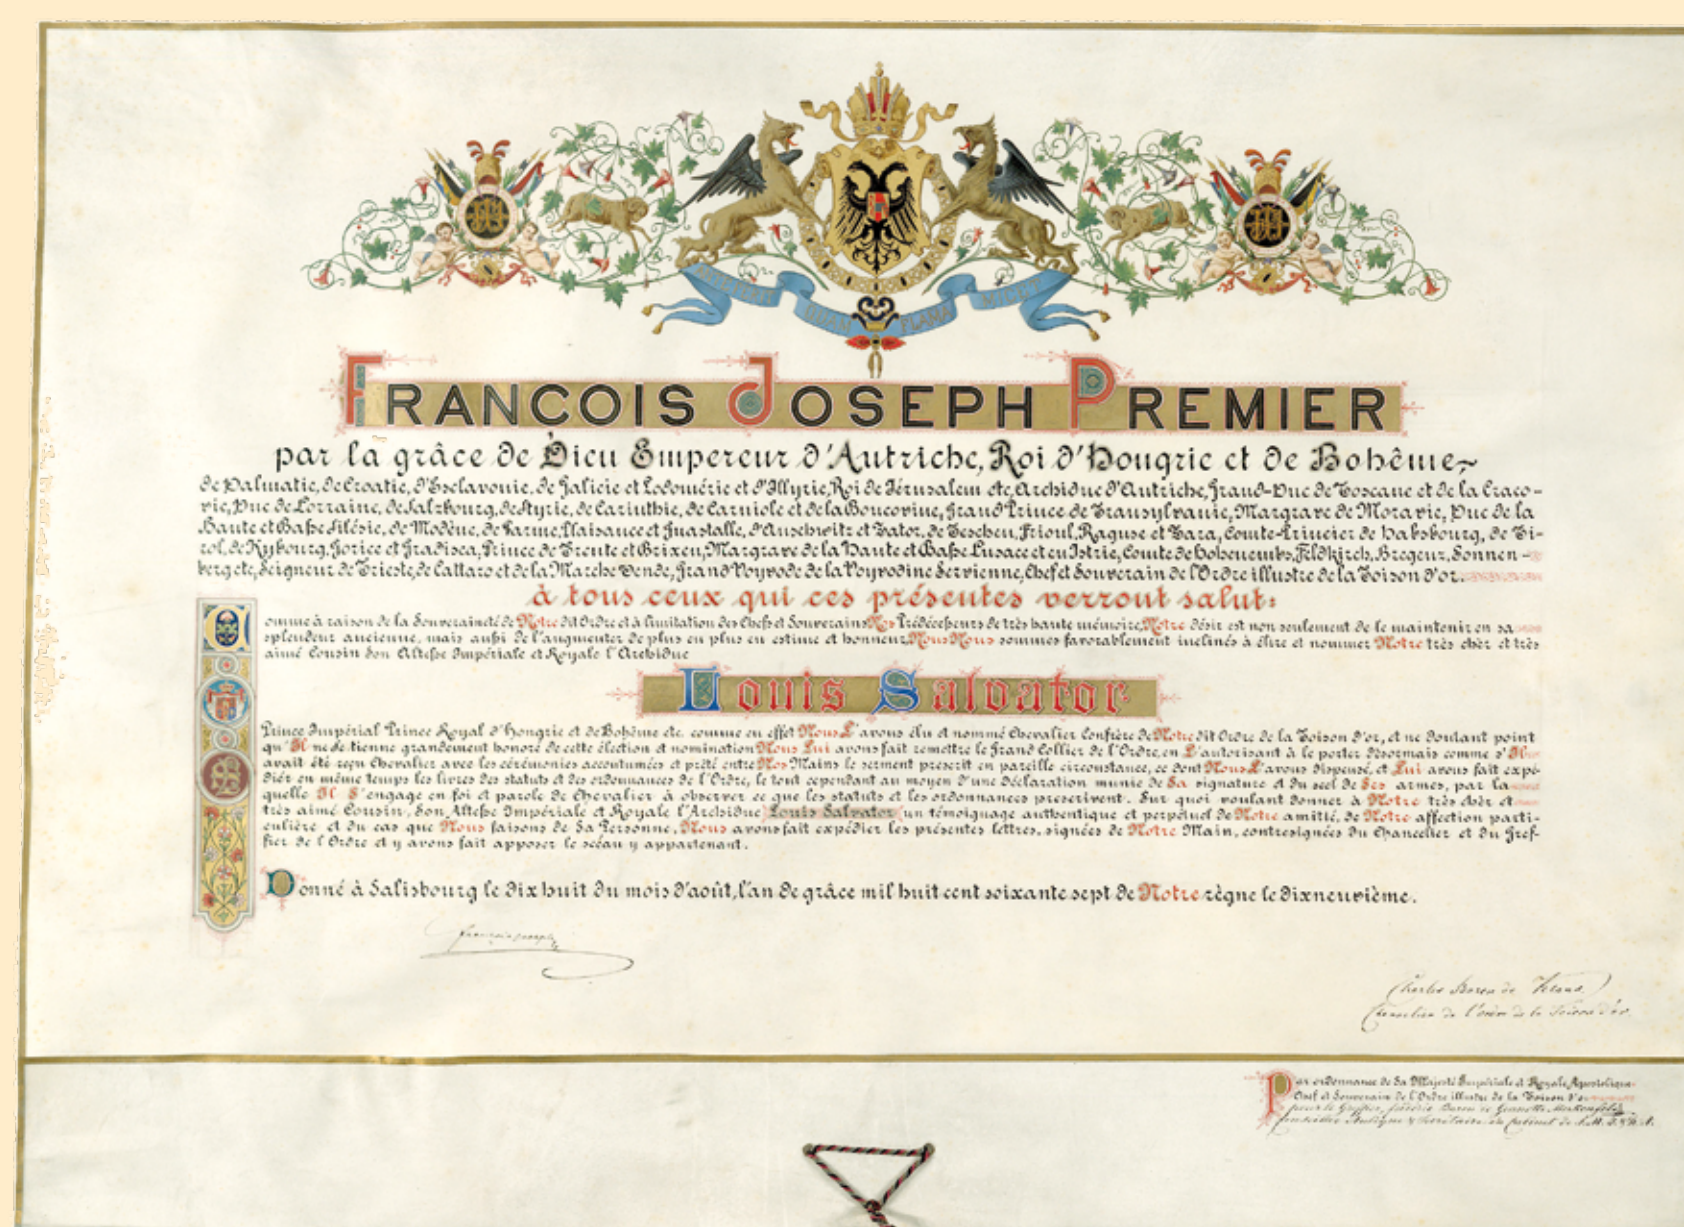 ANTEFERIT QUAM FLAMA MICET
FRANCOIS JOSEPH PREMIER
par la grâce de Dieu Empereur d'Autriche, Roi d'Hongrie et de Bohême,
de Dalmatie, de Croatie, d'Esclavonie, de Galicie et Lodomérie et d'Illyrie, Roi de Jérusalem etc, Archiduc d'Autriche, Grand-Duc de Toscane et de la Craco-
vie, Duc de Lorraine, de Salzbourg, de Styrie, de Carinthie, de Carniole et de la Boucovine, Grand Prince de Transylvanie, Margrave de Moravie, Duc de la
Haute et Basse Silésie, de Modène, de Parme, Plaisance et Guastalle, d'Auschwitz et Zator, de Teschen, Frioul, Raguse et Zara, Comte-Princier de Habsbourg, de Ti-
rol, de Kybourg, Gorice et Gradisca, Prince de Trente et Brixen, Margrave de la Haute et Basse Lusace et en Istrie, Comte de Hohenembs, Feldkirch, Bregenz, Sonnen-
berg etc, Seigneur de Trieste, de Cattaro et de la Marche Vende, Grand Voyvode de la Voyvodine Servienne, Chef et Souverain de l'Ordre illustre de la Toison d'or.
à tous ceux qui ces présentes verront salut:
Comme à raison de la Souveraineté de Notre dit Ordre et à l'imitation des Chefs et Souverains Nos Prédécesseurs de très haute mémoire, Notre désir est non seulement de le maintenir en sa
splendeur ancienne, mais aussi de l'augmenter de plus en plus en estime et honneur, Nous Nous sommes favorablement inclinés à élire et nommer Notre très cher et très
aimé Cousin Son Altesse Impériale et Royale l'Archiduc
Louis Salvator
Prince Impérial Prince Royal d'Hongrie et de Bohême etc. comme en effet Nous L'avons élu et nommé Chevalier Confrère de Notre dit Ordre de la Toison d'or, et ne doutant point
qu'Il ne se tienne grandement honoré de cette élection et nomination Nous Lui avons fait remettre le Grand Collier de l'Ordre, en L'autorisant à le porter désormais comme s'Il
avait été reçu Chevalier avec les cérémonies accoutumées et prêté entre Nos Mains le serment prescrit en pareille circonstance, ce dont Nous L'avons dispensé, et Lui avons fait expé-
dier en même temps les livres des statuts et des ordonnances de l'Ordre, le tout cependant au moyen d'une déclaration munie de Sa signature et du scel de Ses armes, par la
quelle Il S'engage en foi et parole de Chevalier à observer ce que les statuts et les ordonnances prescrivent. Sur quoi voulant donner à Notre très cher et
très aimé Cousin, Son Altesse Impériale et Royale l'Archiduc Louis Salvator un témoignage authentique et perpétuel de Notre amitié, de Notre affection parti-
culière et du cas que Nous faisons de Sa Personne, Nous avons fait expédier les présentes lettres, signées de Notre Main, contresignées du Chancelier et du Gref-
fier de l'Ordre et y avons fait apposer le scéau y appartenant.
Donné à Salisbourg le dix huit du mois d'août, l'an de grâce mil huit cent soixante sept de Notre règne le dixneuvième.
François Joseph
Charles Baron de
Chancelier de l'ordre de la Toison d'or.
Par ordonnance de Sa Majesté Impériale et Royale Apostolique
Chef et Souverain de l'Ordre illustre de la Toison d'or
pour le Greffier, Baron de